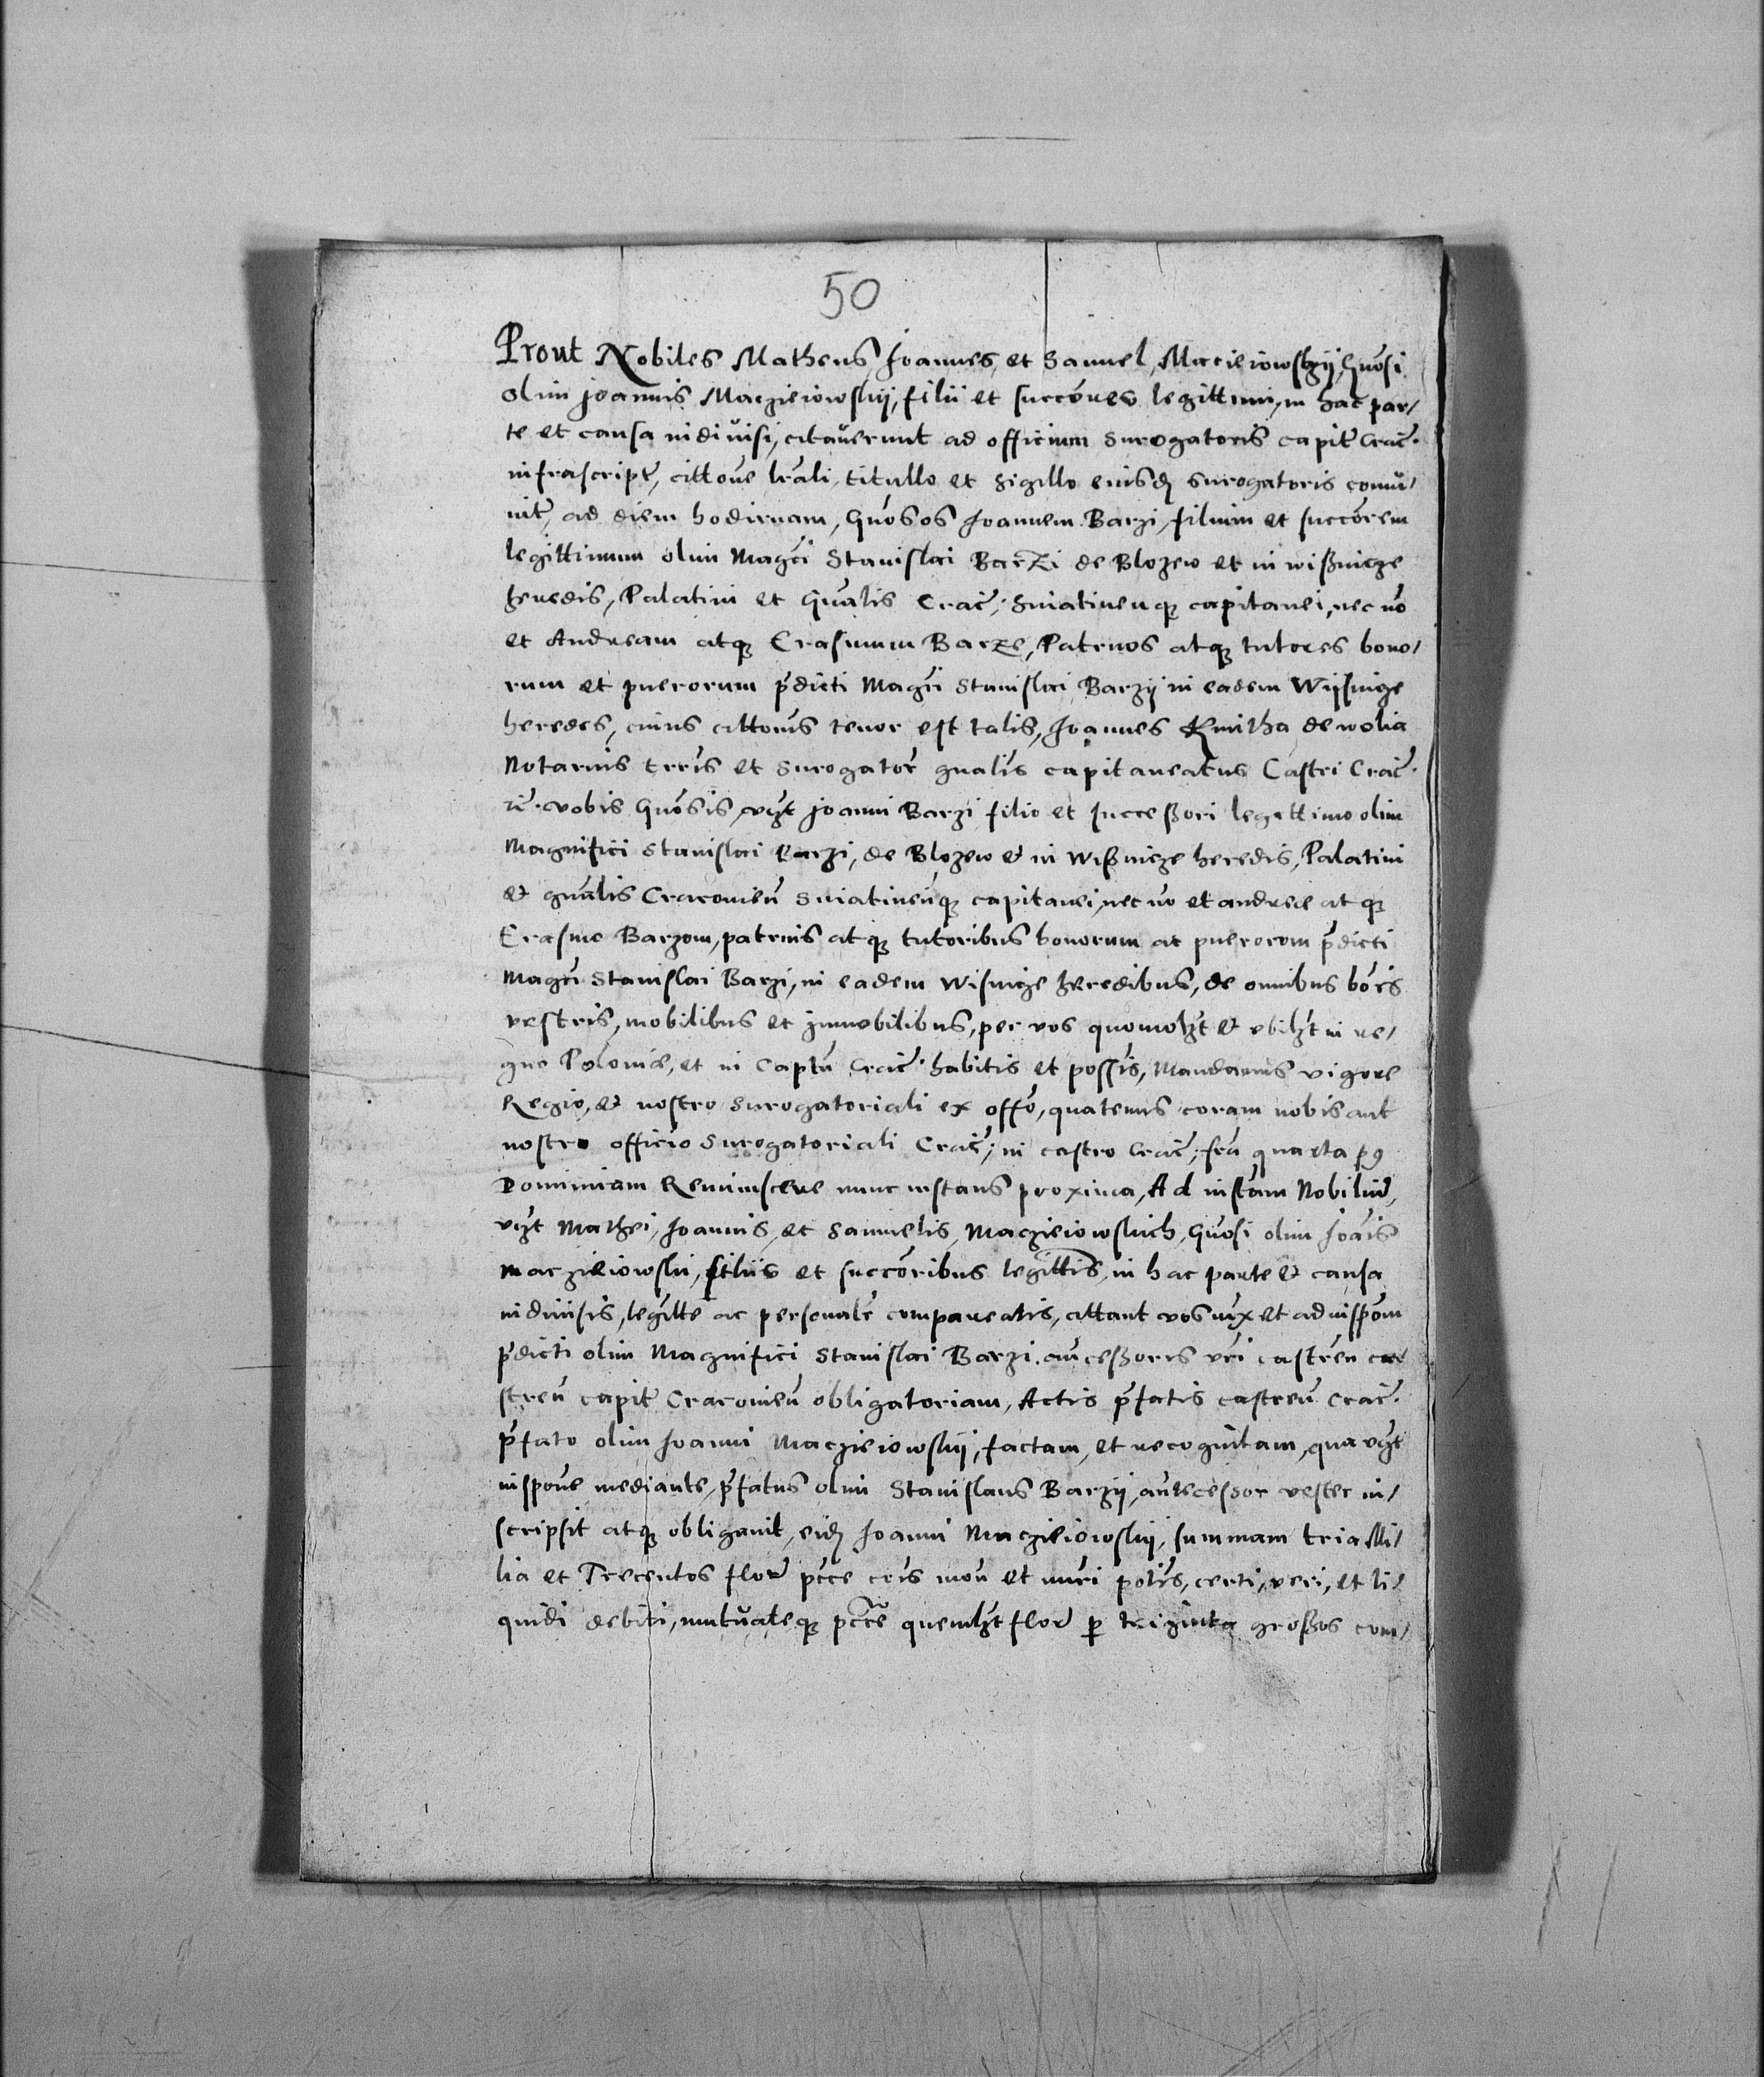 50
Prout Nobiles Matheus, Joannes, et Samuel, Macieiowskÿ, Gnosi
olim Joannis Maczieiowskÿ, filii et succōres legittimi, in hac par/
te et causa indiuisi, citauerunt ad officium Surogatoris capit̃ Crac̃.
infrascript̃, cittōne lrāli, titullo et sigillo eiusdꝫ surogatoris comū/
nit̃, ad diem hodiernam, Gnōsos Joannem Barzi, filium et succōrem
legittimum olim Magc̃i Stanislai Barzi de Blozew et in wißnicze
heredis, Palatini et Gnālis Crac̃, Sniatinenqꝫ capitanei, nec nō
et Andream atqꝫ Erasmum Barze, Patruos atqꝫ tutores bono/
rum et puerorum p̄dicti Magc̃i Stanislai Barzÿ in eadem Wÿsnicze
heredes, cuius cittonis tenor est talis, Joannes Kmitha de wolia
Notarius terr̄is et Surogator gnālis capitaneatus Castri Crac̃.
rc̃. vobis Gnōsis, vꝫt Joanni Barzi filio et successori legittimo olim
Magnifici Stanislai Barzi, de Blozew & in Wißnicze heredis, Palatini
& gnālis Cracouien̄ Sniatinen̄qꝫ capitanei, nec nō et andreæ atqꝫ
Erasmo Barzom, patruis atqꝫ tutoribus bonorum ac puerorom p̄dicti
Magc̃i Stanislai Barzi, in eadem Wisnicze heredibus, de omnibus bōis
vestris, mobilibus et immobilibus, per vos quomolꝫt & vbilꝫt in re/
gno Poloniæ, et in Captu Crac̃. habitis et possis̄, Mandamus vigore
Regio, & nostro Surogatoriali ex offō, quatenus coram nobis aut
nostro officio Surogatoriali Crac̃, in castro Crac̃, fer̄a quarta pꝰ
Dominicam Reminiscere nunc instans proxima, Ad instām Nobiliu̅,
vꝫt Mathei, Joannis, et Samuelis, Maczieiowskich, Gnōsi olim Joānis
Maczieiowski, filiis et succōribus legittis, in hac parte & causa
indiuisis, legitte ac personalr̃ compareatis, cittant vos iux̄ et ad inspōm
p̄dicti olim Magnifici Stanislai Barzi. antcessoris vr̄i castren̄ ca/
stren̄ capit̃ Cracouien̄ obligatoriam, Actis p̄fatis castren̄ Crac̃.
p̄fato olim Joanni Maczieiowskÿ, factam, et recognitam, qua vꝫt
inspōne mediante, p̄fatus olim Stanislaus Barzÿ, antecessor vester in/
scripsit atqꝫ obligauit, eidꝫ Joanni Maczieiowskÿ, summam tria Mi/
lia et Trecentos flor̃ pc̄ce cōis mon̄ et nuri̅ polis̄, certi, veri, et li/
quidi debiti, mutuateqꝫ pc̄ce quemlꝫt flor̃ ꝑ triginta großos com/